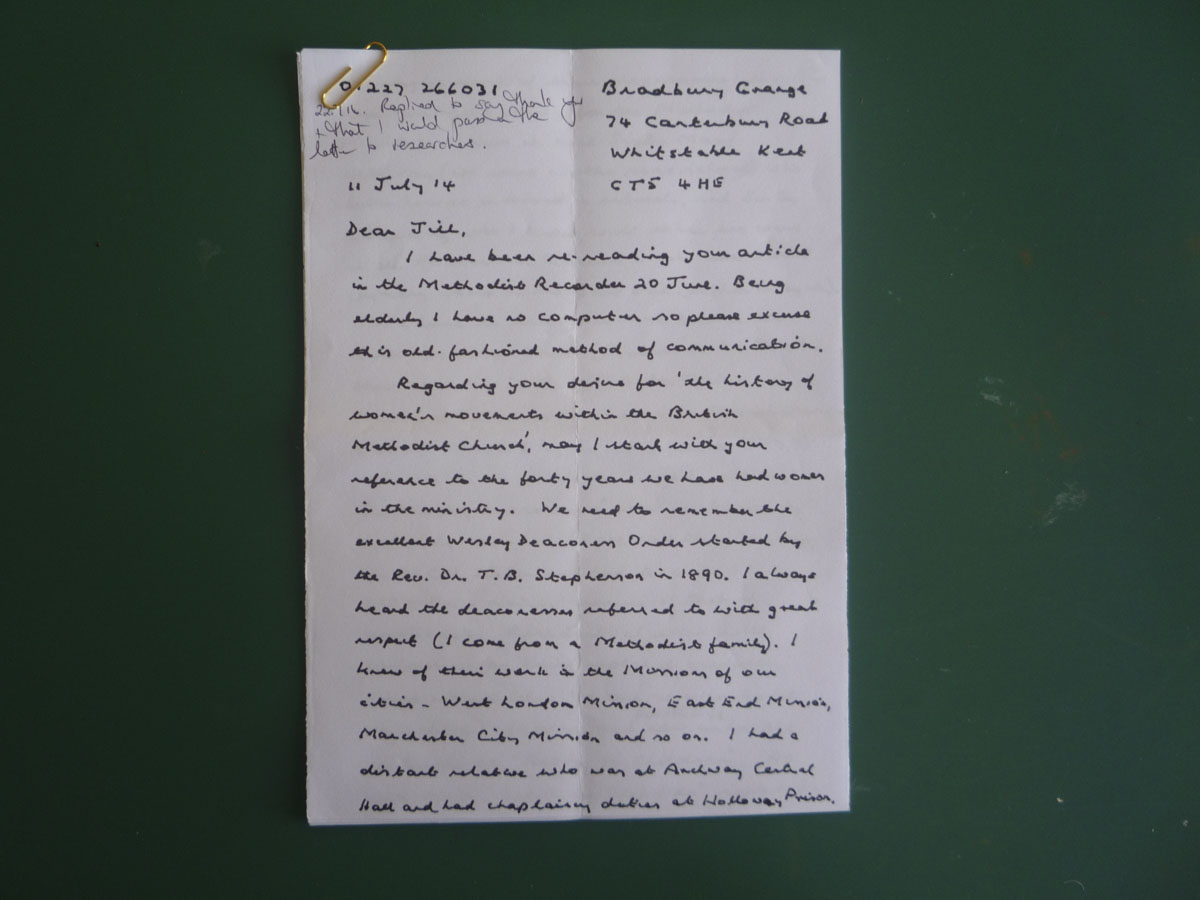 01227 266031
Bradbury Grange
74 Canterbury Road
Whitstable Kent
CT5 4HE
Replied to say thank you
+ that I would pass on the
letter to researchers.
11 July 14
Dear Jill,
I have been re-reading your article
in the Methodist Recorder 20 June. Being
elderly I have no computer so please excuse
this old-fashioned method of communication.
Regarding your desire for 'the history of
women's movements within the British
Methodist Church', may I start with your
reference to the forty years we have had women
in the ministry. We need to remember the
excellent Wesley Deaconess Order started by
the Rev. Dr. T. B. Stephenson in 1890. I always
heard the deaconesses referred to with great
respect (I come from a Methodist family). I
knew of their work in the Missions of our
cities - West London Mission, East End Mission,
Manchester City Mission and so on. I had a
distant relative who was at Archway Central
Hall and had chaplaincy duties at Holloway Prison.